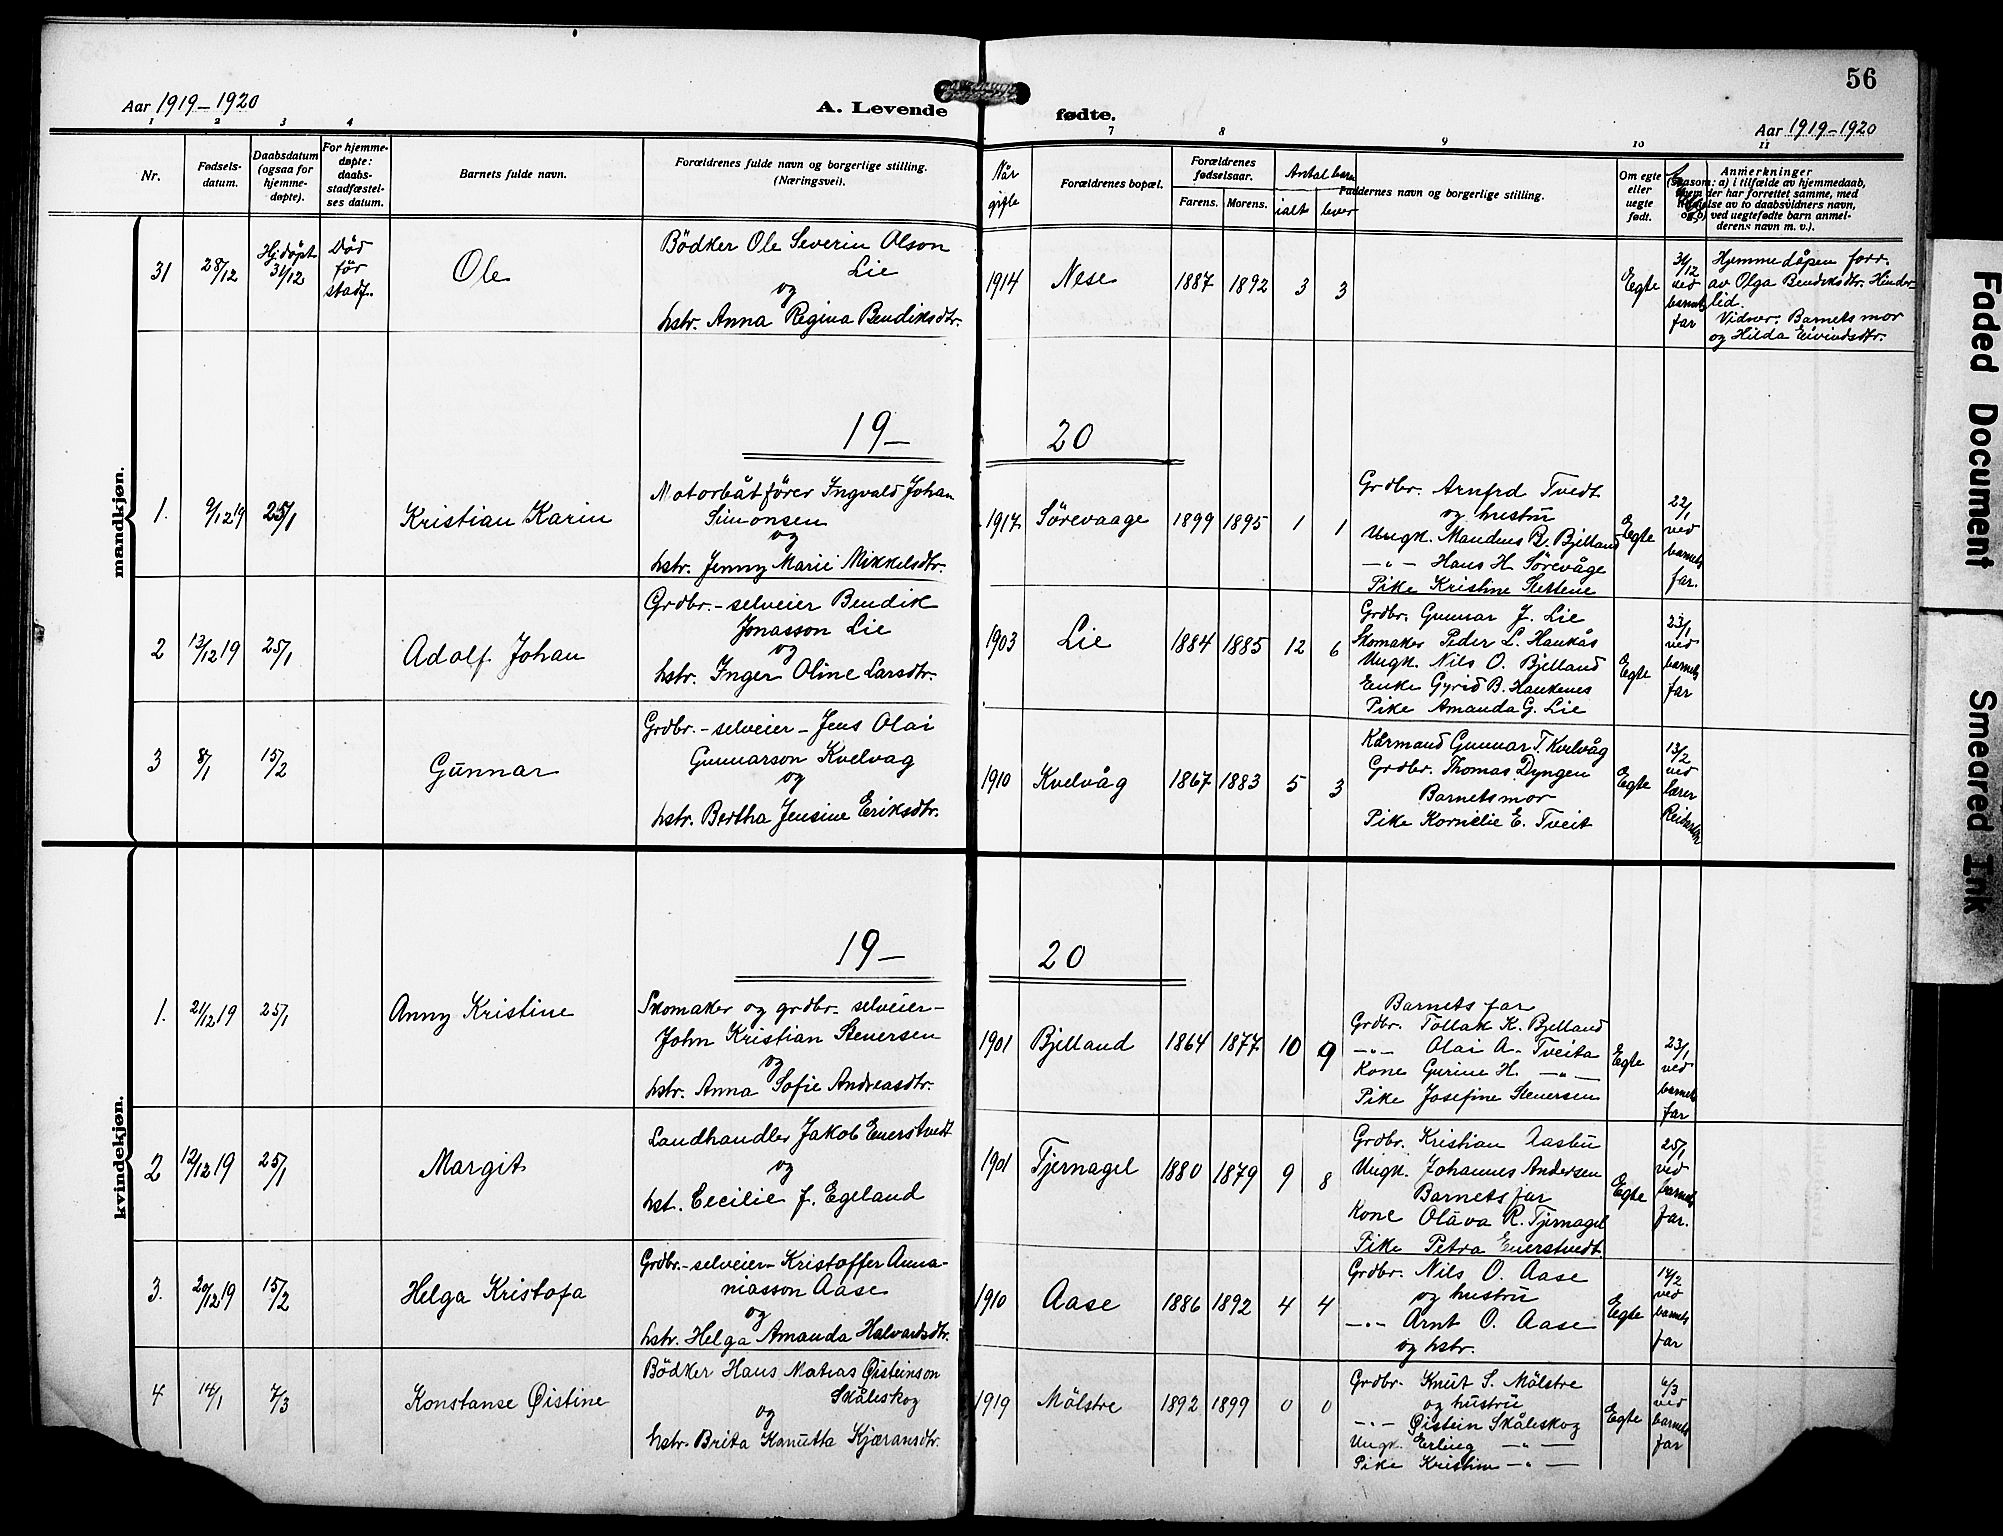 56
Aar 1919-1920
A. Levende
fødte.
Aar 1919-1920
1 2 3 4
7 8 9 10 11
Nr.
Fødsels-
datum.
Daabsdatum
(ogsaa for
hjemme-
døpte).
For hjemme-
døpte:
daabs-
stadfæstel-
ses datum.
Barnets fulde navn.
Forældrenes fulde navn og borgerlige stilling.
(Næringsvei).
Når
gifte
Forældrenes bopæl.
Forældrenes
fødselsaar.
Farens. Morens.
Antal barn
ialt lever
Faddernes navn og borgerlige stilling.
Om egte
eller
uegte
født.
Anmerkninger
(saasom: a) i tilfælde av hjemmedaab,
hvem der har forrettet samme, med
av to daabsvidners navn,
og b) ved uegtefødte barn anmel-
derens navn m. v.).
mandkjøn.
31 28/12 Hj.døpt 31/12 Død før stadf. Ole
Bödker Ole Severin Olson
Lie
og
hstr. Anna Regina Bendiksdtr.
1914 Nese 1887 1892 3 3 Egte
31/12 ved barnets far
Hjemmedåpen forr.
av Olga Bendiksdtr. Hinder-
lid.
Vidner: Barnets mor
og Hilda Eivindsdtr.
19- 20
1. 9/12 19 25/1 Kristian Karin
Motorbåtfører Ingvald Johan
Simonsen
og
hstr. Jenny Marie Mikkelsdtr.
1917 Sörevaage 1899 1895 1 1
Grdbr. Arnfrd Tvedt
og hustru
Ungk. Mandens B. Bjelland
-"- Hans H. Sörevåge
Pike Kristine Slettene
Egte 22/1 ved barnets far.
2 13/12 19 25/1 Adolf Johan
Grdbr.-selveier Bendik
Jonasson Lie
og
hstr. Inger Oline Larsdtr.
1903 Lie 1884 1885 12 6
Grdbr. Gunnar J. Lie
Skomaker Peder L. Haukås
Ungk. Nils O. Bjelland
Enke Gyrid B. Haukenes
Pike Amanda G. Lie
Egte 23/1 ved barnets far
3 8/1 15/2 Gunnar
Grdbr.-selveier-Jens Olai
Gunnarson Kvelvag
og
hstr. Bertha Jensine Eriksdtr.
1910 Kvelvåg 1867 1883 5 3
Kårmand Gunnar T. Kvelvåg
Grdbr. Thomas Dyngen
Barnets mor
Pike Kornelie E. Tveit
Egte 13/2 ved lærer
kvindekjøn.
19- 20
1. 21/12 19 25/1 Anny Kristine
Skomaker og grdbr.-selveier-
John Kristian Steversen
og
hstr. Anna Sofie Andreasdtr.
1901 Bjelland 1864 1877 10 9
Barnets far
Grdbr. Tollak K. Bjelland
-"- Olai A. Tveita
Kone Gurine H. -"-
Pike Josefine Steversen
Egte 23/1 ved barnets far
2 12/12 19 25/1 Margit
Landhandler Jakob Everstvedt
og
hst. Cecilie f. Egeland
1901 Tjernagel 1880 1879 9 8
Grdbr. Kristian Aasbu
Ungk. Johannes Andersen
Barnets far
Kone Olava R. Tjernagel
Pike Petra Everstvedt.
Egte 25/1 ved barnets far.
3. 20/12 19 15/2 Helga Kristofa
Grdbr.-selveier-Kristoffer Anna-
niasson Aase
og
hstr. Helga Amanda Halvardsdtr.
1910 Aase 1886 1892 4 4
Grdbr. Nils O. Aase
og hustru
-"- Arnt O. Aase
og hstr.
Egte 14/2 ved barnets far
4 14/1 7/3 Konstanse Øistine
Bödker Hans Matias Øisteinson
Skåleskog
og
hstr. Brita Kanutta Kjæransdtr.
1919 Mölstre 1892 1899 0 0
Grdbr. Knut S. Mölstre
og hustru
-"- Øistein Skåleskog
Ungk. Erling -"-
Pike Kristine -"-
Egte 6/3 ved barnets far
Faded Document
Smeared Ink